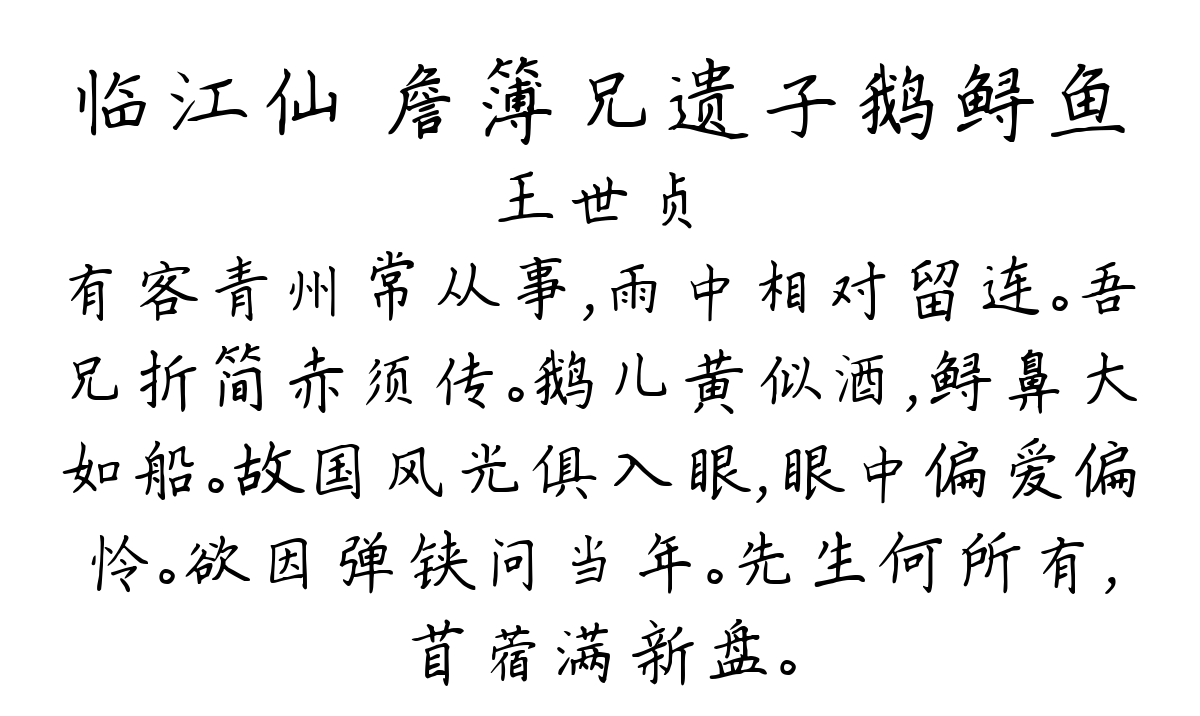 临江仙 詹簿兄遗子鹅鲟鱼
王世贞
有客青州常从事,雨中相对留连。吾
兄折简赤须传。鹅儿黄似酒,鲟鼻大
如船。故国风光俱入眼,眼中偏爱偏
怜。欲因弹铗问当年。先生何所有,
苜蓿满新盘。